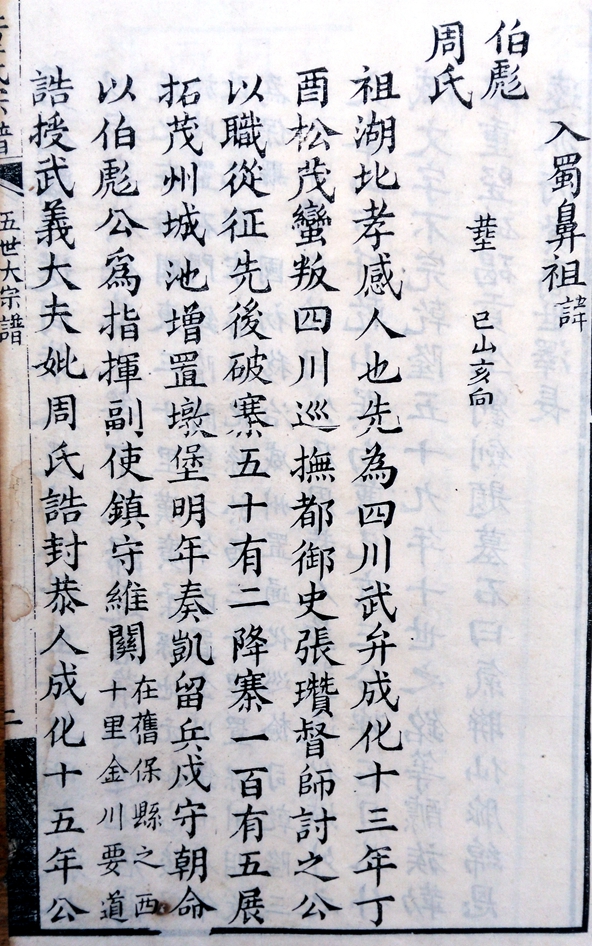 入蜀鼻祖諱
伯彪
周氏
塟 巳山亥向
祖湖北孝感人也先為四川武弁成化十三年丁
酉松茂蠻叛四川巡撫都御史張瓚督師討之公
以職從征先後破寨五十有二降寨一百有五展
拓茂州城池增置墩堡明年奏凱留兵戍守朝命
以伯彪公爲指揮副使鎮守維關在舊保縣之西
十里金川要道
誥授武義大夫妣周氏誥封恭人成化十五年公
五世大宗譜